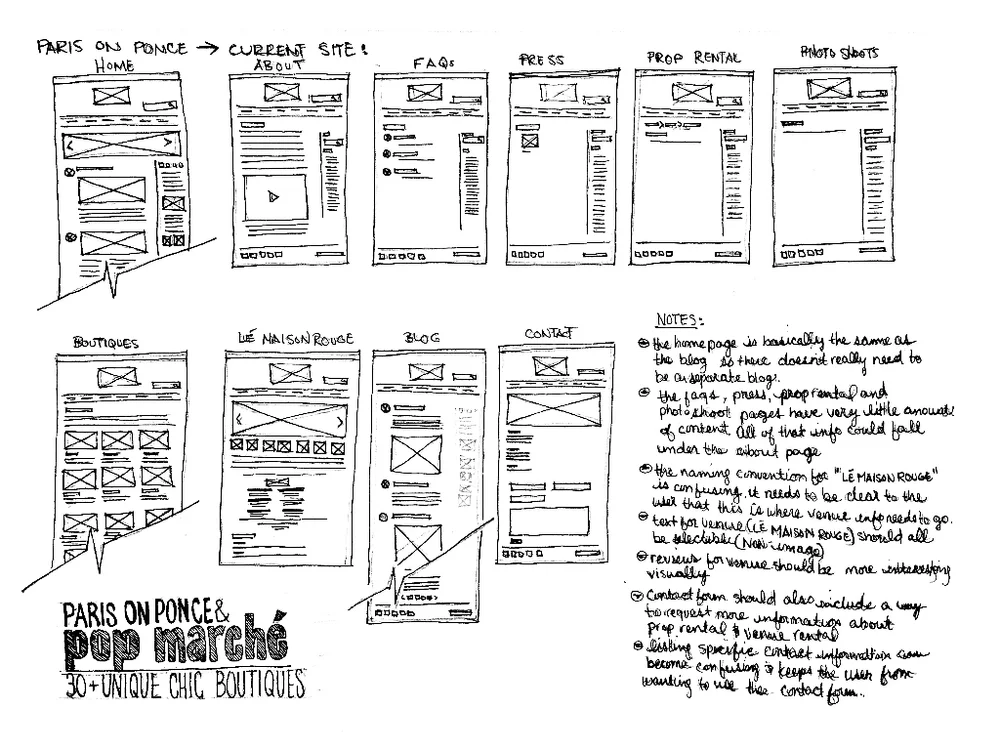 PARIS ON PONCE → CURRENT SITE:
HOME
ABOUT
FAQs
PRESS
PROP RENTAL
PHOTO SHOOTS
BOUTIQUES
LÉ MAISON ROUGE
BLOG
CONTACT
NOTES:
the homepage is basically the same as
the blog so there doesn't really need to
be a separate blog.
the faqs, press, prop rental and
photo shoot pages have very little amounts
of content. All of that info could fall
under the about page
the naming convention for "LÉ MAISON ROUGE"
is confusing. it needs to be clear to the
user that this is where venue info needs to go.
text for venue (LÉ MAISON ROUGE) should all
be selectable (Non-image)
reviews for venue should be more interesting
visually
Contact form should also include a way
to request more information about
prop rental & venue rental
listing specific contact information can
become confusing & keeps the user from
wanting to use the contact form.
PARIS ON PONCE &
pop marché
30+ UNIQUE CHIC BOUTIQUES